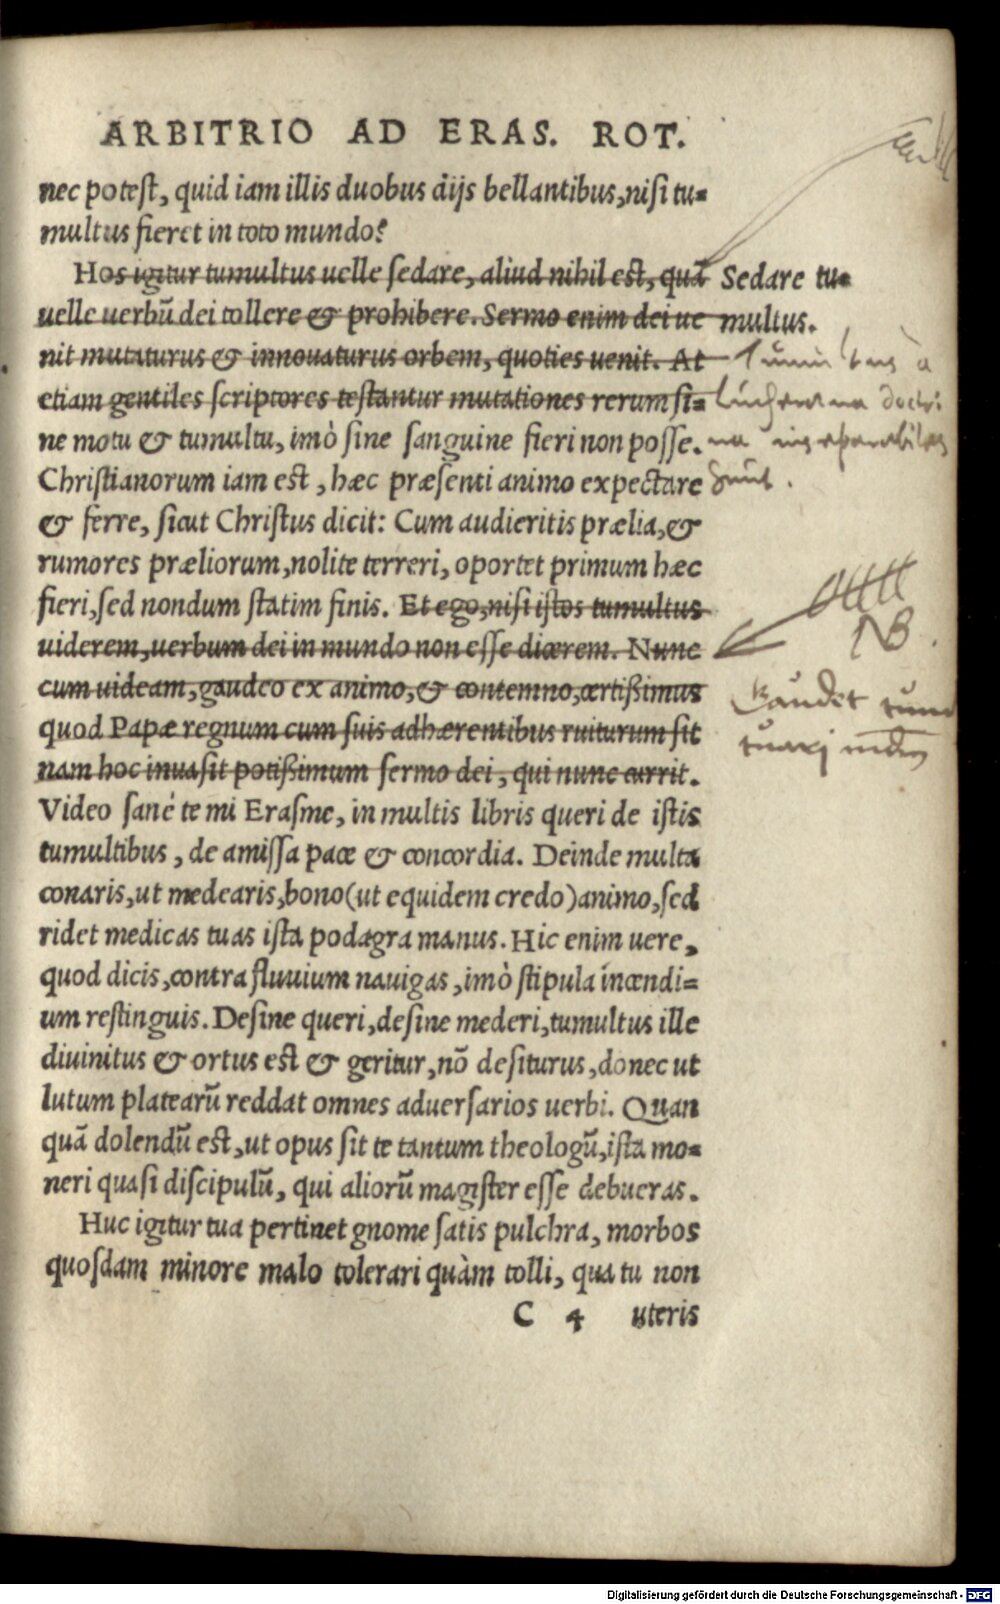 ARBITRIO AD ERAS. ROT.
nec potest, quid iam illis duobus dijs bellantibus, nisi tu-
multus fieret in toto mundo?
Hos igitur tumultus uelle sedare, aliud nihil est, quã
Sedare tu-
uelle uerbũ dei tollere & prohibere. Sermo enim dei ue
multus.
nit mutaturus & innouaturus orbem, quoties uenit. At
Tumultus à
etiam gentiles scriptores testantur mutationes rerum si-
Lutherana doctri
ne motu & tumultu, imò sine sanguine fieri non posse.
na inseparabiles
Christianorum iam est, hæc præsenti animo expectare
sunt.
& ferre, sicut Christus dicit: Cum audieritis prælia, &
rumores præliorum, nolite terreri, oportet primum hæc
fieri, sed nondum statim finis. Et ego, nisi istos tumultus
NB.
uiderem, uerbum dei in mundo non esse dicerem. Nunc
cum uideam, gaudeo ex animo, & contemno, certißimus
Gaudet
quod Papæ regnum cum suis adhærentibus ruiturum sit
nam hoc inuasit potißimum sermo dei, qui nunc currit.
Video sanè te mi Erasme, in multis libris queri de istis
tumultibus, de amissa pace & concordia. Deinde multa
conaris, ut medearis, bono (ut equidem credo) animo, sed
ridet medicas tuas ista podagra manus. Hic enim uere,
quod dicis, contra fluuium nauigas, imò stipula incendi-
um restinguis. Desine queri, desine mederi, tumultus ille
diuinitus & ortus est & geritur, nõ desiturus, donec ut
lutum platearũ reddat omnes aduersarios uerbi. Quan
quã dolendũ est, ut opus sit te tantum theologũ, ista mo-
neri quasi discipulũ, qui aliorũ magister esse debueras.
Huc igitur tua pertinet gnome satis pulchra, morbos
quosdam minore malo tolerari quàm tolli, qua tu non
C 4 uteris
Digitalisierung gefördert durch die Deutsche Forschungsgemeinschaft - DFG